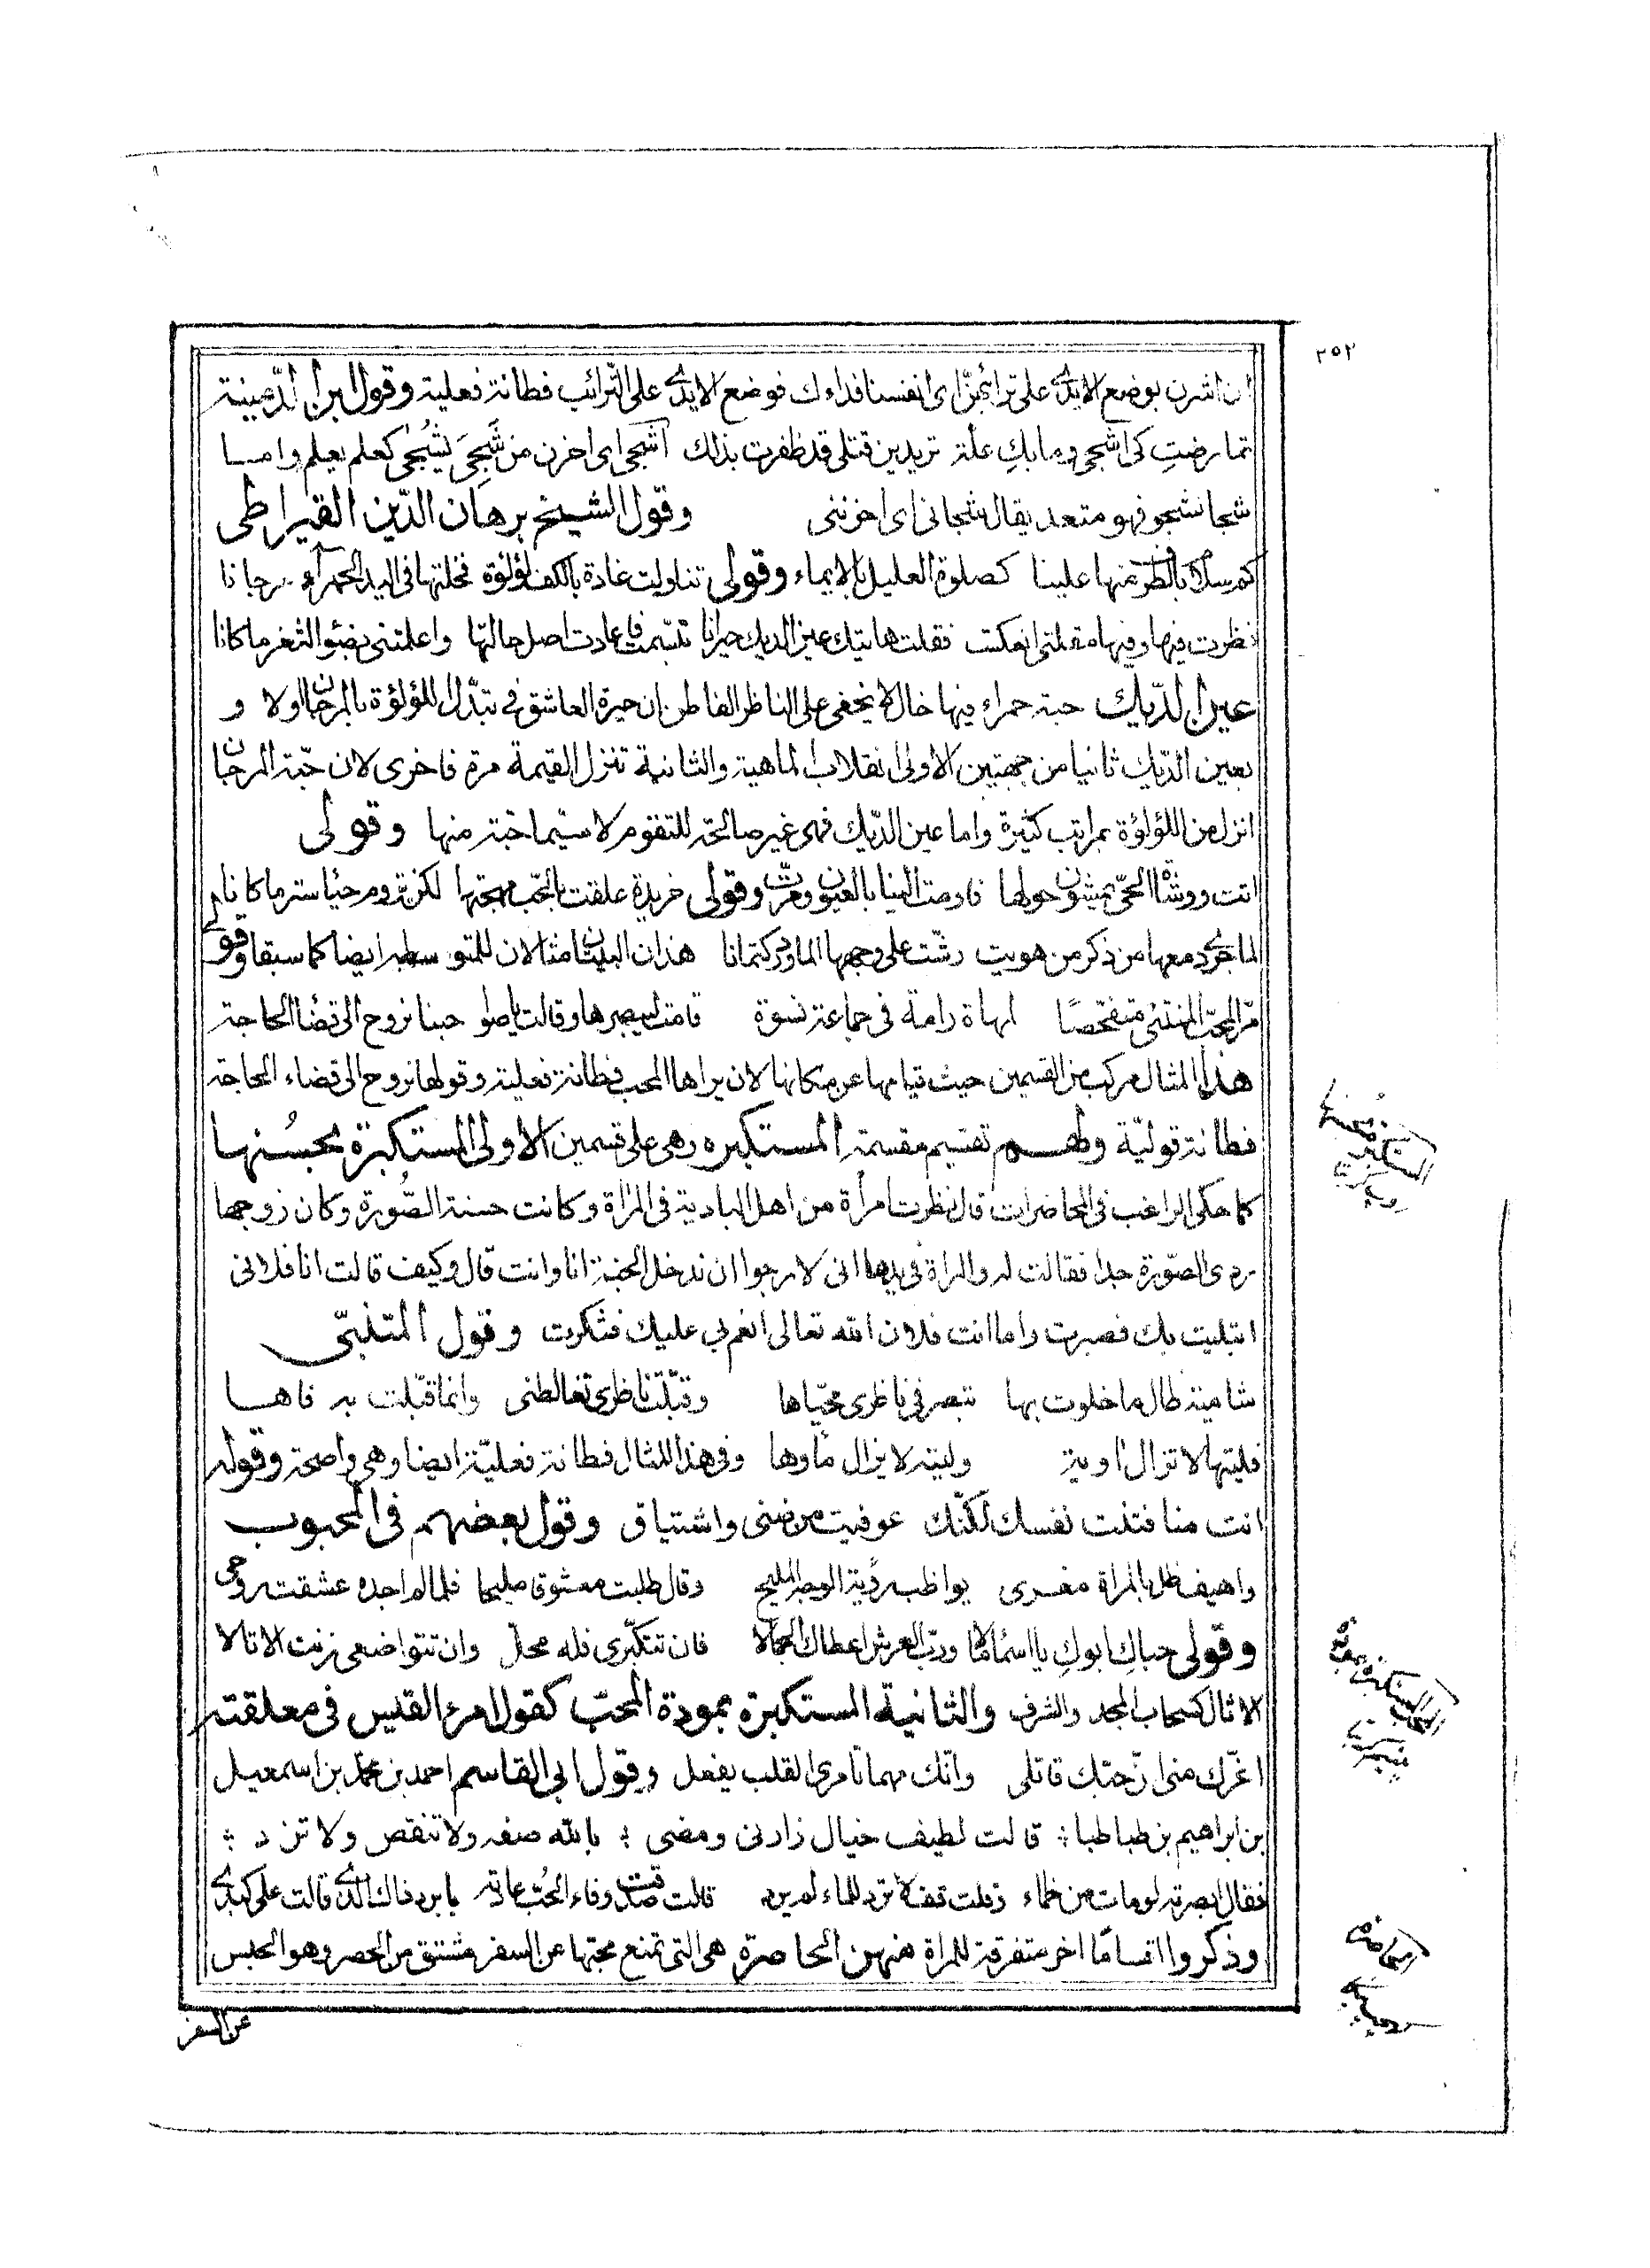 ٢٥٢
ان اشرن بوضع الايدى على ترائبهن اى انفسنا فداءك فوضع الايدى على الترائب فطانة فعلية وقول ابن الدّمينة
تمارضتِ كى اشجى وما بكِ علة تريدين قتلى قد ظفرت بذلك اشجى اى احزن من شَجِىَ يشجى كعلم يعلم واما
شجا يشجو فهو متعد يقال شجانى اى احزننى وقول الشيخ برهان الدّين القيراطى
كم سلام بالطرف منها علينا كصلوة العليل بالايماء وقولى تناولت غادة بالكف لؤلؤة فخلتها فى اليد الحمراء مرجانا
نظرت فيها وفيها مقلتى انعكست فقلت هاتيك عين الديك حيرانا تبسّمت فاعادت اصل حالتها واعلمتنى بضوء الثغر ما كانا
عين الدّيك حبة حمراء فيها خال لا يخفى على الناظر الفاطن ان حيرة العاشق فى تبدّل اللؤلؤة بالمرجان اولا و
بعين الدّيك ثانيا من جهتين الاولى انقلاب الماهية والثانية تنزل القيمة مرة فاخرى لان حبّة المرجان
انزل من اللؤلؤة بمراتب كثيرة واما عين الدّيك فهى غير صالحة للتقوم لا سيّما حبة منها وقولى
اتت ووشاة الحىّ يمشون حولها فاومت الينا بالعيون ومرّت وقولى خريدة علقت بالحبّ مهجتها لكن تروم حياء ستر ما كانا
لما جرى دمعها من ذكر من هويت رشّت على وجهها الماورد كتمانا هذان البيتان مثالان للمتوسطة ايضا كما سبقا وقولى
مرّ المحبّ المنتئى متفحّصًا لمهاة رامة فى جماعة نسوة قامت ليبصرها وقالت يا صواحبنا نروح الى قضاء الحاجة
هذا المثال مركب من القسمين حيث قيامها عن مكانها لان يراها المحب فطانة فعلية وقولها نروح الى قضاء الحاجة
فطانة قوليّة ولهم تقسيم مقسمة المستكبره وهى على قسمين الاولى المستكبرة بحسنها
كما حكى الراغب فى المحاضرات قال نظرت امرأة من اهل البادية فى المراة وكانت حسنة الصّورة وكان زوجها
ردى الصّورة جدا فقالت له والمراة فى يدها انى لارجوا ان ندخل الجنة انا وانت قال وكيف قالت انا فلانى
ابتليت بك فصبرت واما انت فلان الله تعالى انعم بى عليك فشكرت وقول المتنبّى
شامية طال ما خلوت بها تبصر فى ناظرى محيّاها وقبّلت ناظرى تغالطنى وانما قبّلت به فاها
فليتها لا تزال اوية وليته لا يزال مأوها وفى هذا المثال فطانة فعليّة ايضا وهى واضحة وقوله
انت منا فتنت نفسك لكنّك عوفيت من ضنى واشتياق وقول بعضهم فى المحبوب
واهيف ظل بالمراة مغرى يواظب رؤية الوجه المليح وقال طلبت معشوقا مليحا فلما لم اجده عشقت روحى
وقولى حباكِ ابوكِ يا اسماء مالا وربّ العرش اعطاك الجمالا فان تتكبّرى فله محل وان تتواضعى زنت الاثالا
الاثال كسحاب المجد والشرف والثانية المستكبرة بمودة المحبّ كقول امرء القيس فى معلقته
اغرّك منى انّ حبّك قاتلى وانّك مهما تأمرى القلب يفعل وقول ابى القاسم احمد بن محمد بن اسمعيل
بن ابراهيم بن طباطبا : قالت لطيف خيال زارنى ومضى : بالله صفه ولا تنقص ولا تزد :
فقال ابصرته لو مات من ظماء وقلت قف لا ترد للماء لم يرد قالت صدقت وفاء الحبّ عادته يا برد ذاك الذى قالت على كبدى
وذكروا اقسامًا اخر متفرقة للمراة منهن الحاصرة هى التى تمنع محبّها عن السفر مشتق من الحصر وهو الحبس
عن السفر